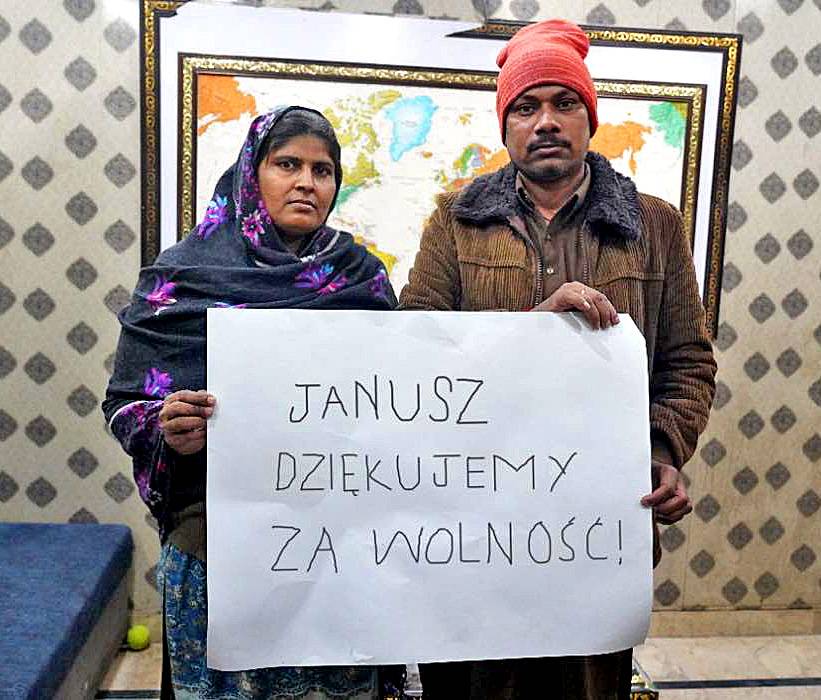 JANUSZ
DZIĘKUJEMY
ZA WOLNOŚĆ!